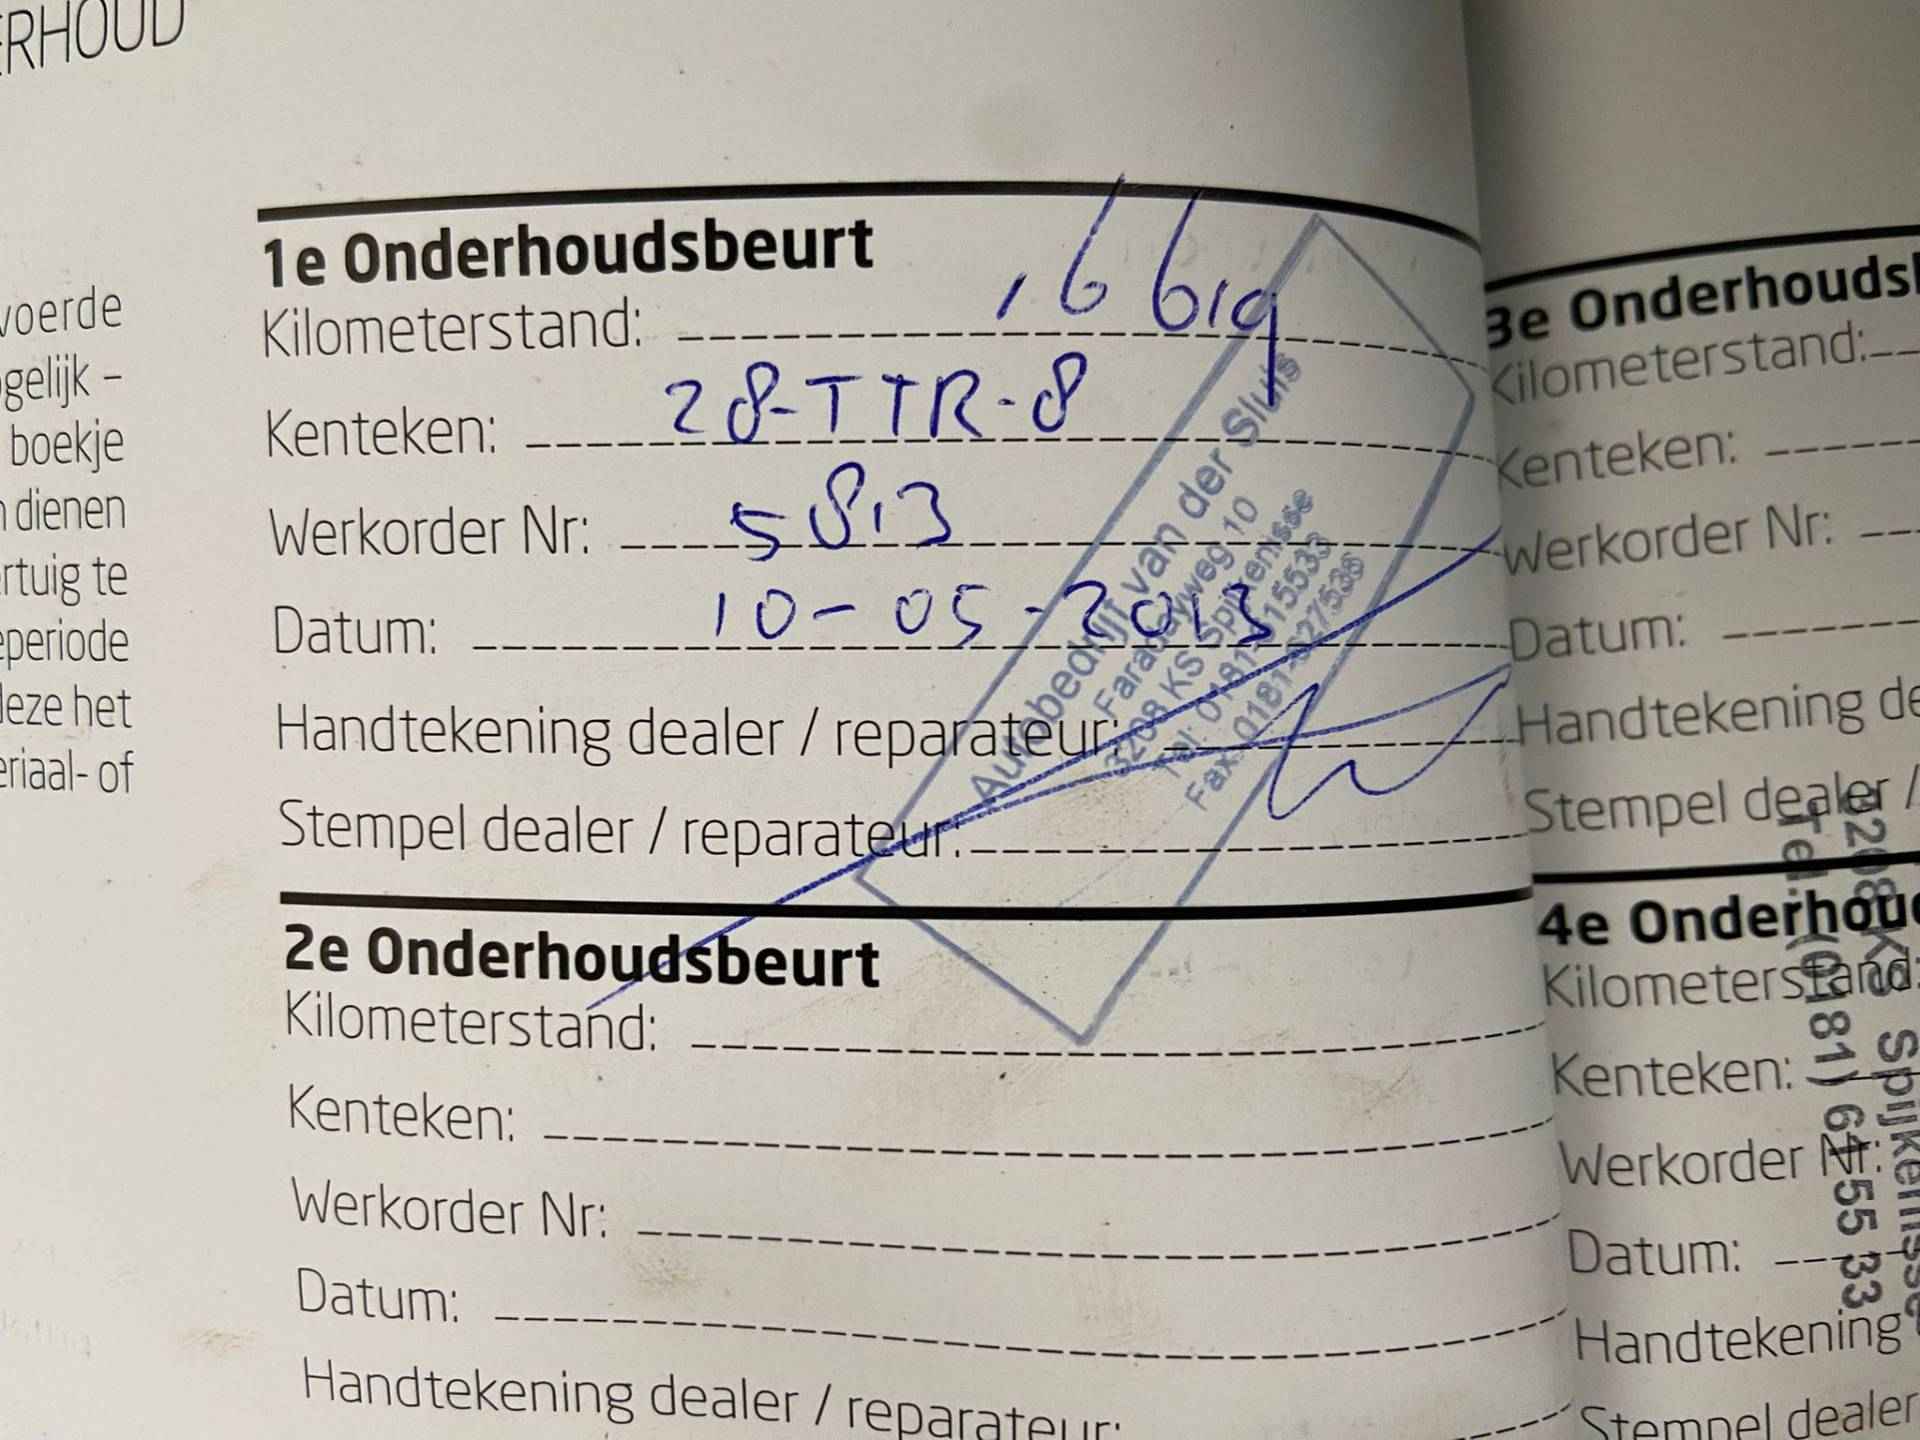 ERHOUD
voerde
ogelijk –
boekje
n dienen
rtuig te
eperiode
deze het
eriaal- of
1e Onderhoudsbeurt
Kilometerstand: 16619
Kenteken: 28-TTR-8
Werkorder Nr: 5813
Datum: 10-05-2013
Handtekening dealer / reparateur:
Stempel dealer / reparateur:
Autobedrijf van der Sluis
Faradayweg 10
3208 KS Spijkenisse
Tel: 0181-615533
Fax: 0181-627538
2e Onderhoudsbeurt
Kilometerstand:
Kenteken:
Werkorder Nr:
Datum:
Handtekening dealer / reparateur:
3e Onderhoudsb
Kilometerstand:
Kenteken:
Werkorder Nr:
Datum:
Handtekening de
Stempel dealer /
4e Onderhoud
Kilometerstand:
Kenteken:
Werkorder Nr:
Datum:
Handtekening
Stempel dealer
3208 KS Spijkenisse
Tel. (0181) 61 55 33